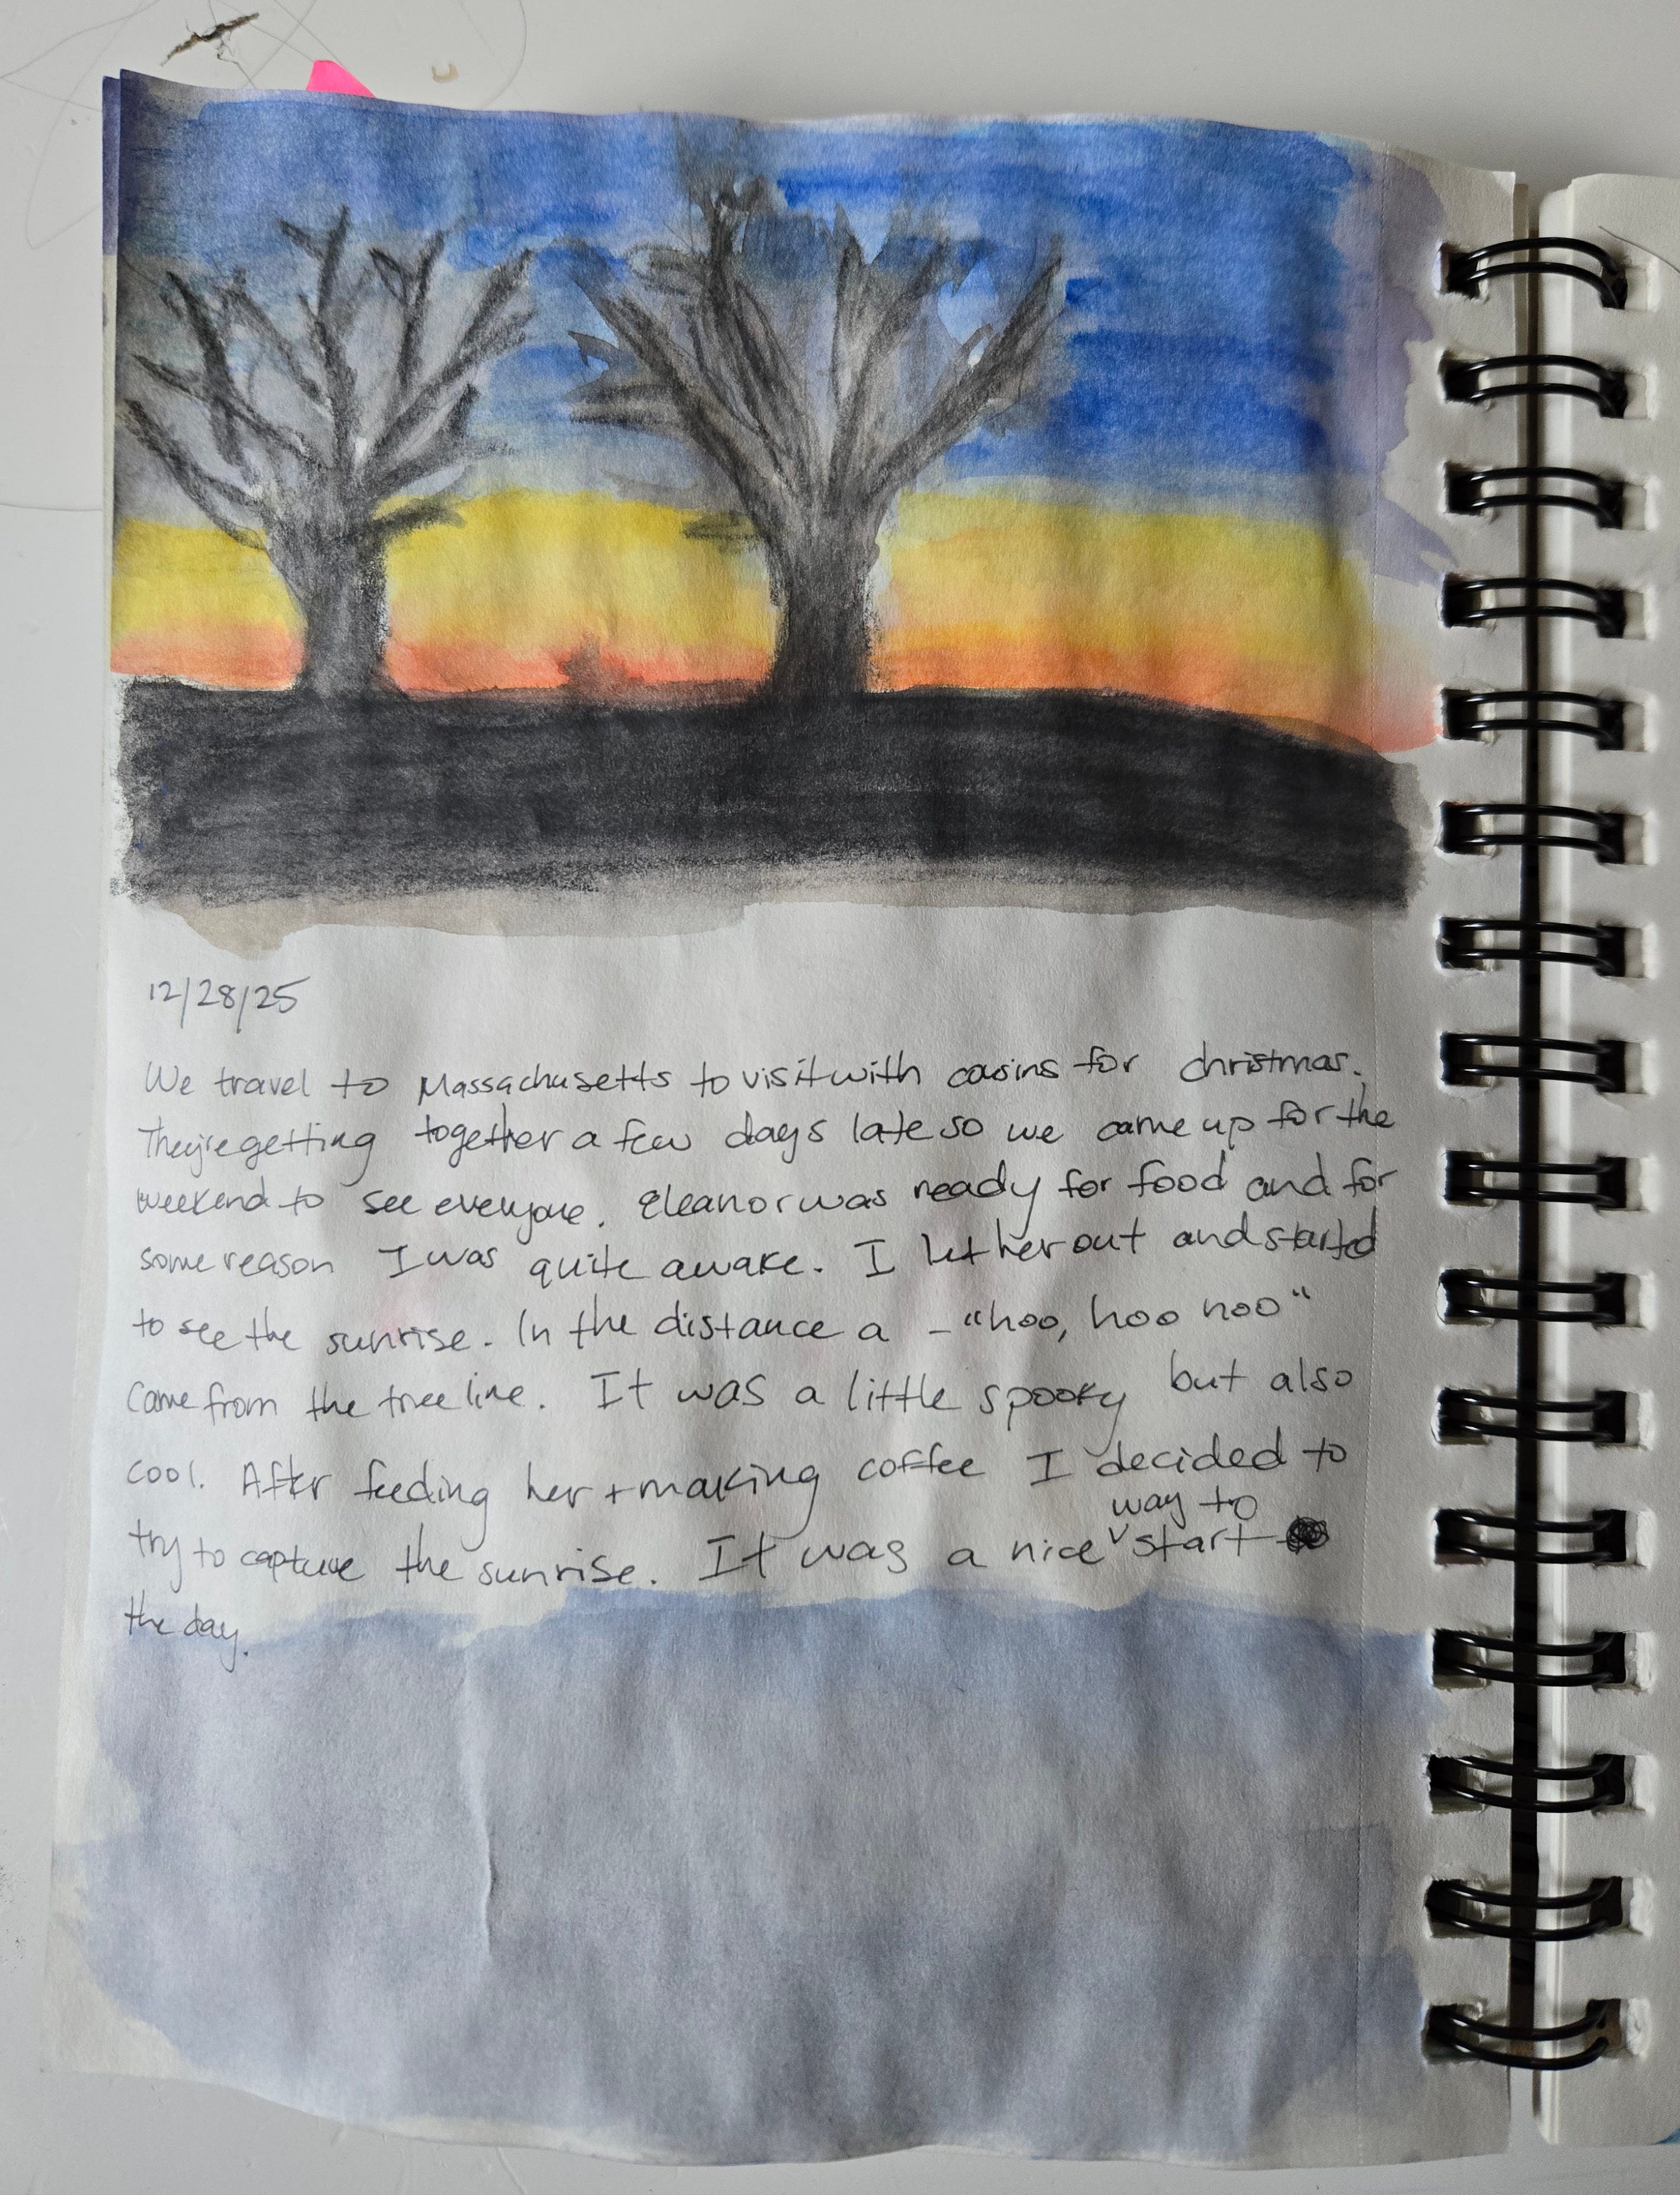 12/28/25
We travel to Massachusetts to visit with cousins for christmas.
They're getting together a few days late so we came up for the
weekend to see everyone. Eleanor was ready for food and for
some reason I was quite awake. I let her out and started
to see the sunrise. In the distance a - "hoo, hoo hoo"
came from the tree line. It was a little spooky but also
cool. After feeding her + making coffee I decided to
way to
try to capture the sunrise. It was a nice ˅ start
the day.